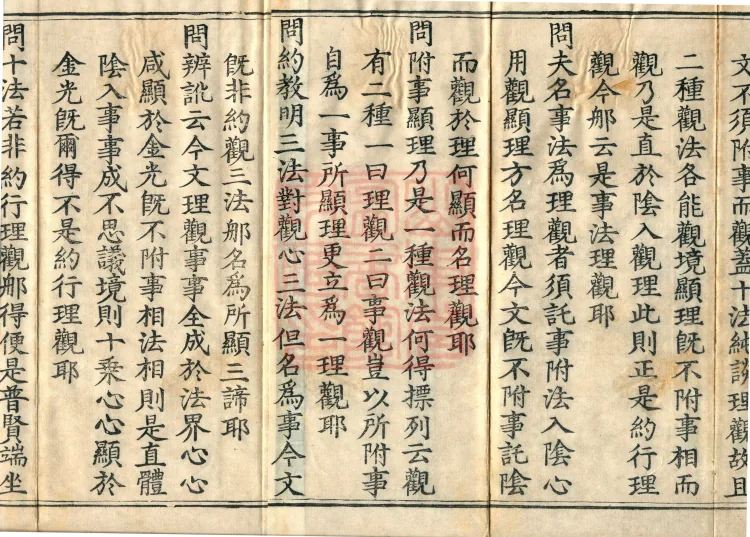 文不須附事而觀蓋十法純談理觀故且
二種觀法各能觀境顯理旣不附事相而
觀乃是直於陰入觀理此則正是約行理
觀今那云是事法理觀耶
問夫名事法爲理觀者須託事附法入陰心
用觀顯理方名理觀今文旣不附事託陰
而觀於理何顯而名理觀耶
問附事顯理乃是一種觀法何得摽列云觀
有二種一曰理觀二曰事觀豈以所附事
自爲一事所顯理更立爲一理觀耶
問約教明三法對觀心三法但名爲事今文
旣非約觀三法那名爲所顯三諦耶
問辨訛云今文理觀事事全成於法界心心
咸顯於金光旣不附事相法相則是直體
陰入事事成不思議境則十乘心心顯於
金光旣爾得不是約行理觀耶
問十法若非約行理觀那得便是普賢端坐